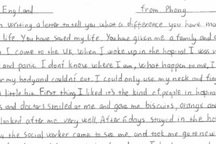 England from Phong
writing a letter to tell you what a difference you have ma
life. You have saved my life. You have given me a family and
I came to the UK when I woke up in the hospital I was
and panic. I dont know where I am, what happen to me, I
my body and couldn't eat. I could only use my neck and
a little bit. First thing I liked it's the kind of people in hospital
and doctors smiled at me and gave me biscuits, orange and
looked after me very well. After 6 days stayed in the ho
the social worker came to see me and took me to